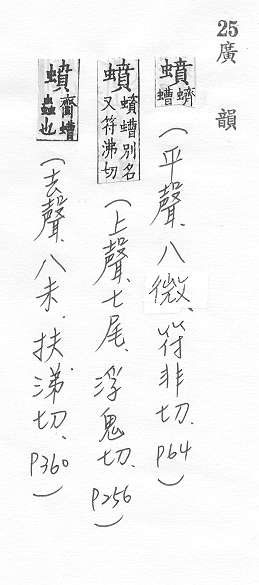 25廣韻
蟦 蠐螬（平聲、八微、符非切、P64）
蟦 蟦螬別名又符沸切（上聲、七尾、浮鬼切、P256）
蟦 齊螬蟲也（去聲、八未、扶涕切、P360）